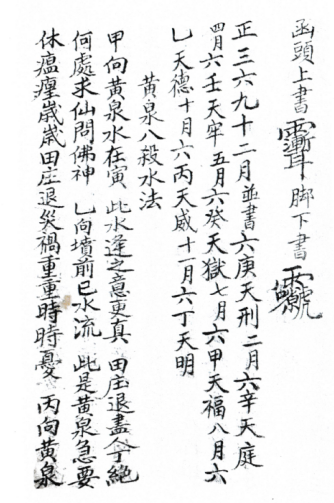 函頭上書脚下書
正三六九十二月並書六庚天刑二月六辛天庭
四月六壬天牢五月六癸天獄七月六甲天福八月六
乙天德十月六丙天威十一月六丁天明
黃泉八殺水法
甲向黃泉水在寅 此水逢之意更真 田庄退盡令絕
何處求仙問佛神 乙向墳前巳水流 此是黃泉急要
休瘟歲歲田庄退災禍重重時時憂 丙向黃泉